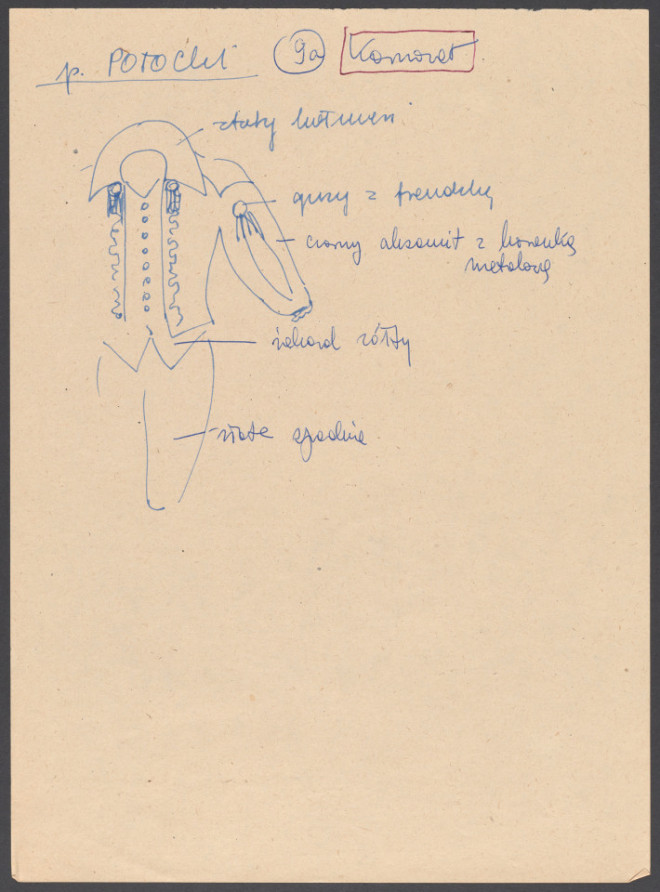 p. POTOCKI 9a Konorat
złoty lutmen
guzy z frendzlą
czarny aksamit z koronką
metalową
żakard żółty
złote spodnie